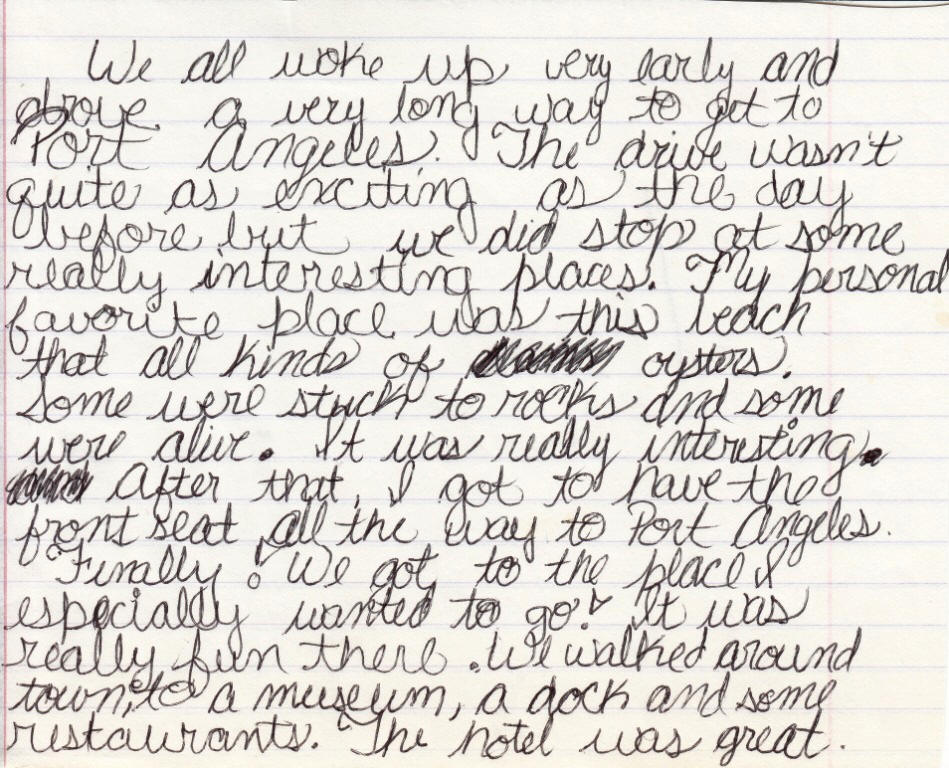 We all woke up very early and
drove a very long way to get to
Port Angeles. The drive wasn't
quite as exciting as the day
before but we did stop at some
really interesting places. My personal
favorite place was this beach
that all kinds of oysters.
Some were stuck to rocks and some
were alive. It was really interesting.
After that, I got to have the
front seat all the way to Port Angeles.
Finally! We got to the place I
especially wanted to go! It was
really fun there. We walked around
town, to a museum, a dock and some
restaurants. The hotel was great.